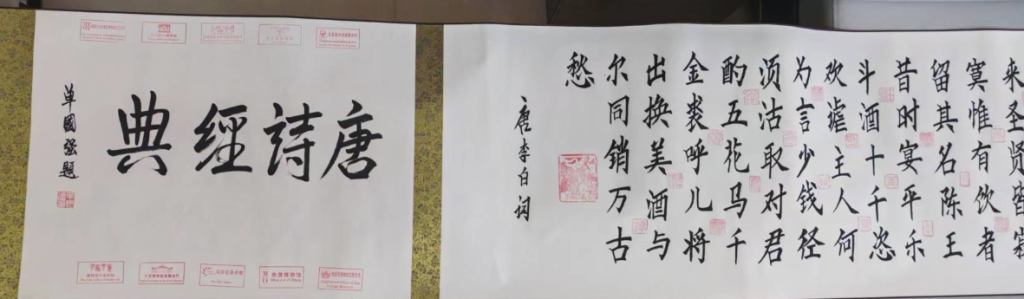 来圣贤皆寂
寞惟有饮者
留其名陈王
昔时宴平乐
斗酒十千恣
欢谑主人何
为言少钱径
须沽取对君
酌五花马千
金裘呼儿将
出换美酒与
尔同销万古
愁
唐李白词
唐詩經典
单國强題